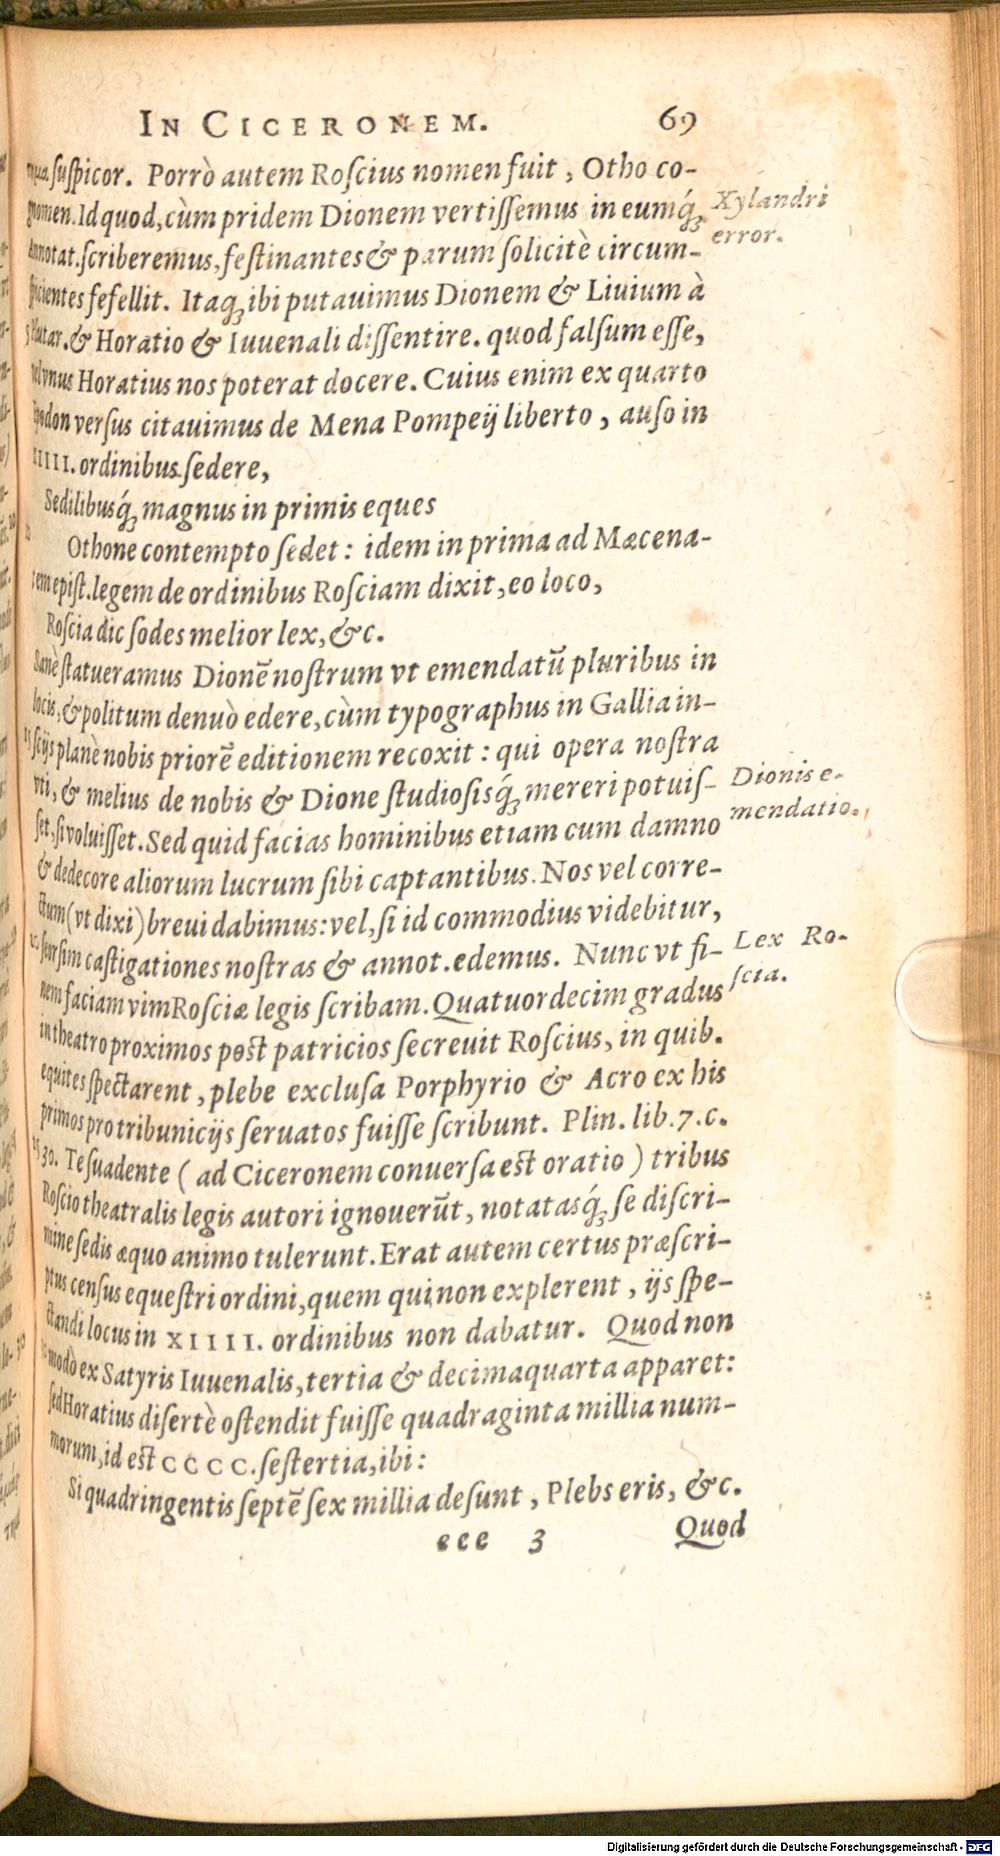 IN CICERONEM. 69
suſpicor. Porrò autem Roſcius nomen fuit, Otho co-
gnomen. Id quod, cùm pridem Dionem vertiſſemus in eumq́;
Annotat. ſcriberemus, feſtinantes & parum ſolicitè circum-
ſpicientes fefellit. Itaq; ibi putauimus Dionem & Liuium à
Plutar. & Horatio & Iuuenali diſſentire. quod falſum eſſe,
vel vnus Horatius nos poterat docere. Cuius enim ex quarto
Epodon verſus citauimus de Mena Pompeij liberto, auſo in
XIIII. ordinibus ſedere,
Sedilibusq́; magnus in primis eques
Othone contempto ſedet: idem in prima ad Mæcena-
tem epiſt. legem de ordinibus Roſciam dixit, eo loco,
Roſcia dic ſodes melior lex, &c.
Sanè ſtatueramus Dionē noſtrum vt emendatū pluribus in
locis, & politum denuò edere, cùm typographus in Gallia in-
ſcijs planè nobis priorē editionem recoxit: qui opera noſtra
vti, & melius de nobis & Dione ſtudioſisq́; mereri potuiſ-
ſet, ſi voluiſſet. Sed quid facias hominibus etiam cum damno
& dedecore aliorum lucrum ſibi captantibus. Nos vel corre-
ctum (vt dixi) breui dabimus: vel, ſi id commodius videbitur,
ſeorſim caſtigationes noſtras & annot. edemus. Nunc vt fi-
nem faciam vim Roſciæ legis ſcribam. Quatuordecim gradus
in theatro proximos post patricios ſecreuit Roſcius, in quib.
equites ſpectarent, plebe excluſa Porphyrio & Acro ex his
primos pro tribunicijs ſeruatos fuiſſe ſcribunt. Plin. lib. 7. c.
30. Te ſuadente (ad Ciceronem conuerſa est oratio) tribus
Roſcio theatralis legis autori ignouerūt, notatasq́; ſe diſcri-
mine ſedis æquo animo tulerunt. Erat autem certus præſcri-
ptus cenſus equeſtri ordini, quem qui non explerent, ijs ſpe-
ctandi locus in XIIII. ordinibus non dabatur. Quod non
modò ex Satyris Iuuenalis, tertia & decimaquarta apparet:
ſed Horatius diſertè oſtendit fuiſſe quadraginta millia num-
morum, id est CCCC. ſeſtertia, ibi:
Si quadringentis ſeptē ſex millia deſunt, Plebs eris, &c.
eee 3 Quod
Xylandri
error.
Dionis e-
mendatio.
Lex Ro-
ſcia.
Digitalisierung gefördert durch die Deutsche Forschungsgemeinschaft - DFG